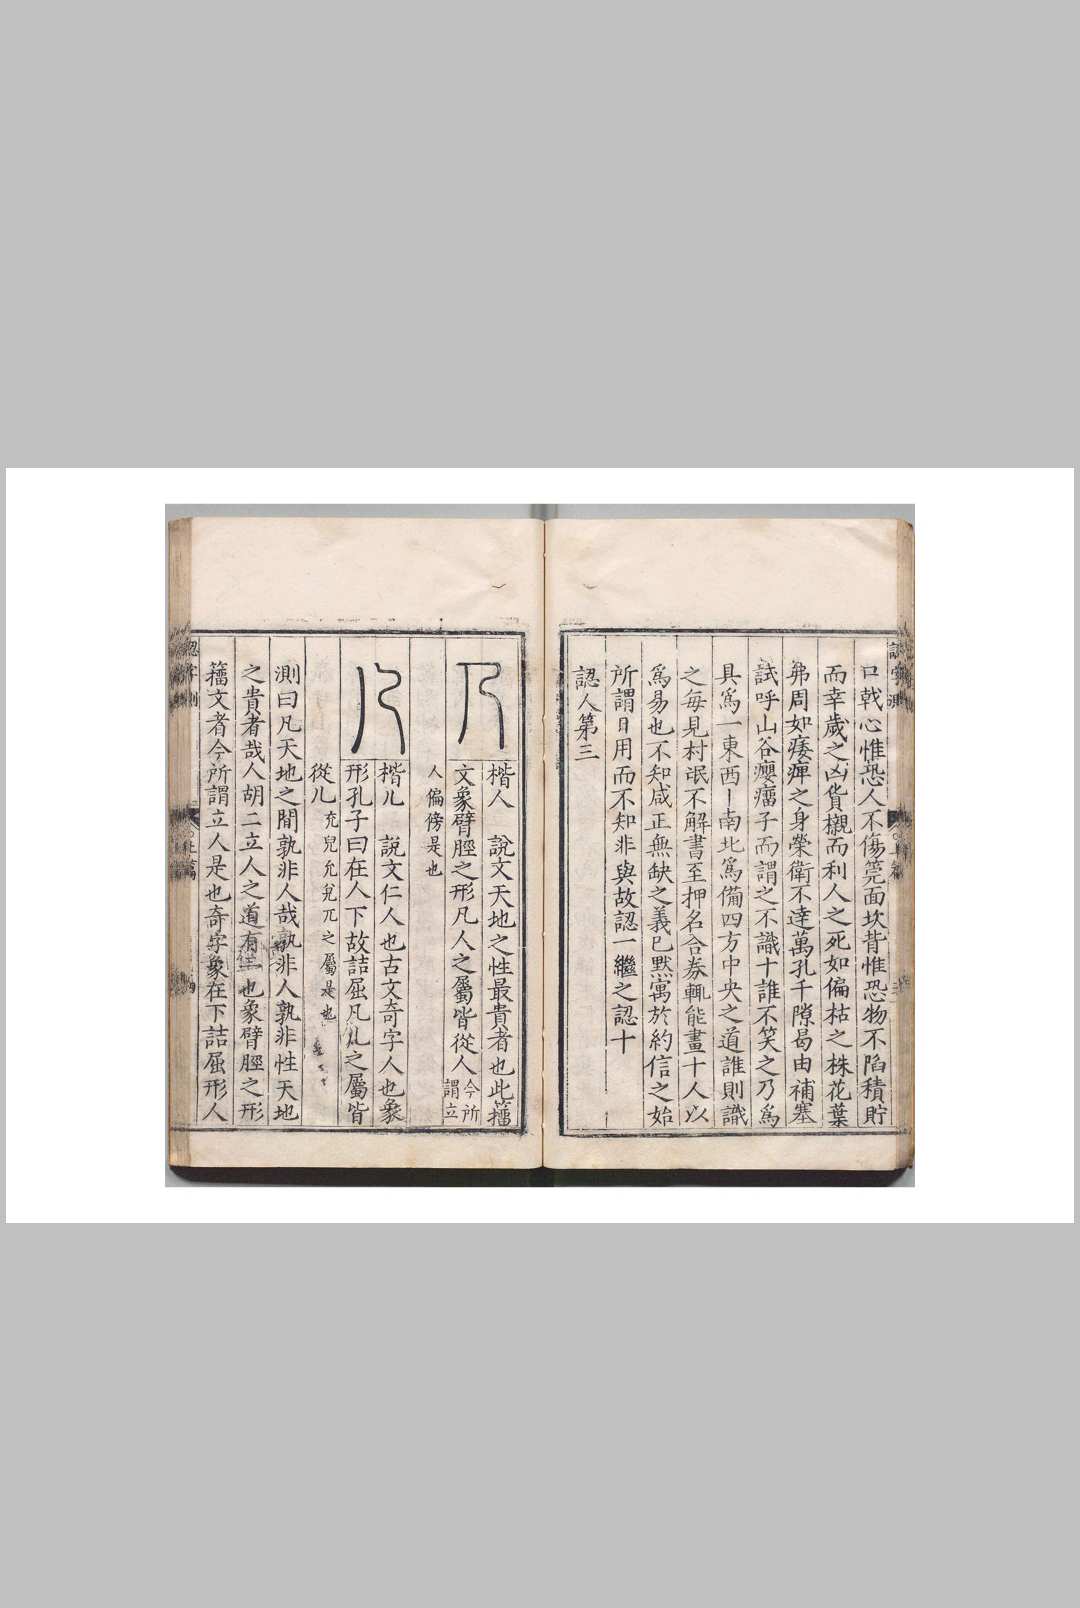 口戟心惟恐人不傷㝃面坎昔惟恐物不陷積貯
而幸歲之凶貨櫬而利人之死如偏枯之株花葉
弗周如痿痺之身榮衛不達萬孔千隙曷由補塞
試呼山谷癭瘤子而謂之不識十誰不笑之乃爲
具爲一東西丨南北爲備四方中央之道誰則識
之每見村氓不解書至押名合券輒能畫十人以
爲易也不知咸正無缺之義已默寓於約信之始
所謂日用而不知非與故認一繼之認十
認人第三
楷人 說文天地之性最貴者也此籒
文象臂脛之形凡人之屬皆從人今所謂立
人偏傍是也
楷儿 說文仁人也古文奇字人也象
形孔子曰在人下故詰屈凡儿之屬皆
從儿充兒允兊兀之屬是也
測曰凡天地之閒孰非人哉孰非人孰非性天地
之貴者哉人胡二立人之道有二也象臂脛之形
籒文者今所謂立人是也奇字象在下詰屈形人